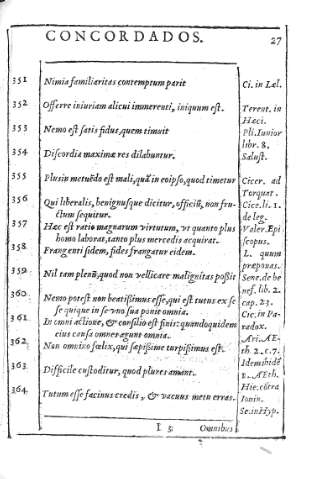 CONCORDADOS. 27
351 Nimia familiaritas contemptum parit Ci. in Læl.
352 Offerre iniuriam alicui immerenti, iniquum est. Terent. in
Heci.
353 Nemo est satis fidus, quem timuit Pli. Iunior
libr. 8.
354 Discordia maximæ res dilabuntur. Salust.
355 Plus in metuẽdo est mali, quã in eo ipso, quod timetur Cicer. ad
Torquat.
356 Qui liberalis, benignusque dicitur, officiũ, non fru- Cice. li. 1.
ctum sequitur. de leg.
357 Hæc est ratio magnarum virtutum, vt quanto plus Valer. Epi
homo laborat, tanto plus mercedis acquirat. scopus.
358 Frangenti fidem, fides frangatur eidem. L. quum
præponas.
359 Nil tam plenũ, quod non vellicare malignitas possit Sene. de be
nef. lib. 2.
360 Nemo potest non beatissimus esse, qui est totus ex se cap. 23.
se quique in se vno sua ponit omnia. Cic. in Pa-
radox.
361 In omni actione, & consilio est finis: quandoquidem
eius causa omnes agunt omnia. Ari. Æ-
th. 2. c. 7.
362 Non omnino fœlix, qui sæpissime turpissimus est.
363 Difficile custoditur, quod plures amant.
364 Tutum esse facinus credis, & vacuus metu erras. Ionin.
Se. in Hyp.
I 3 Omnibus